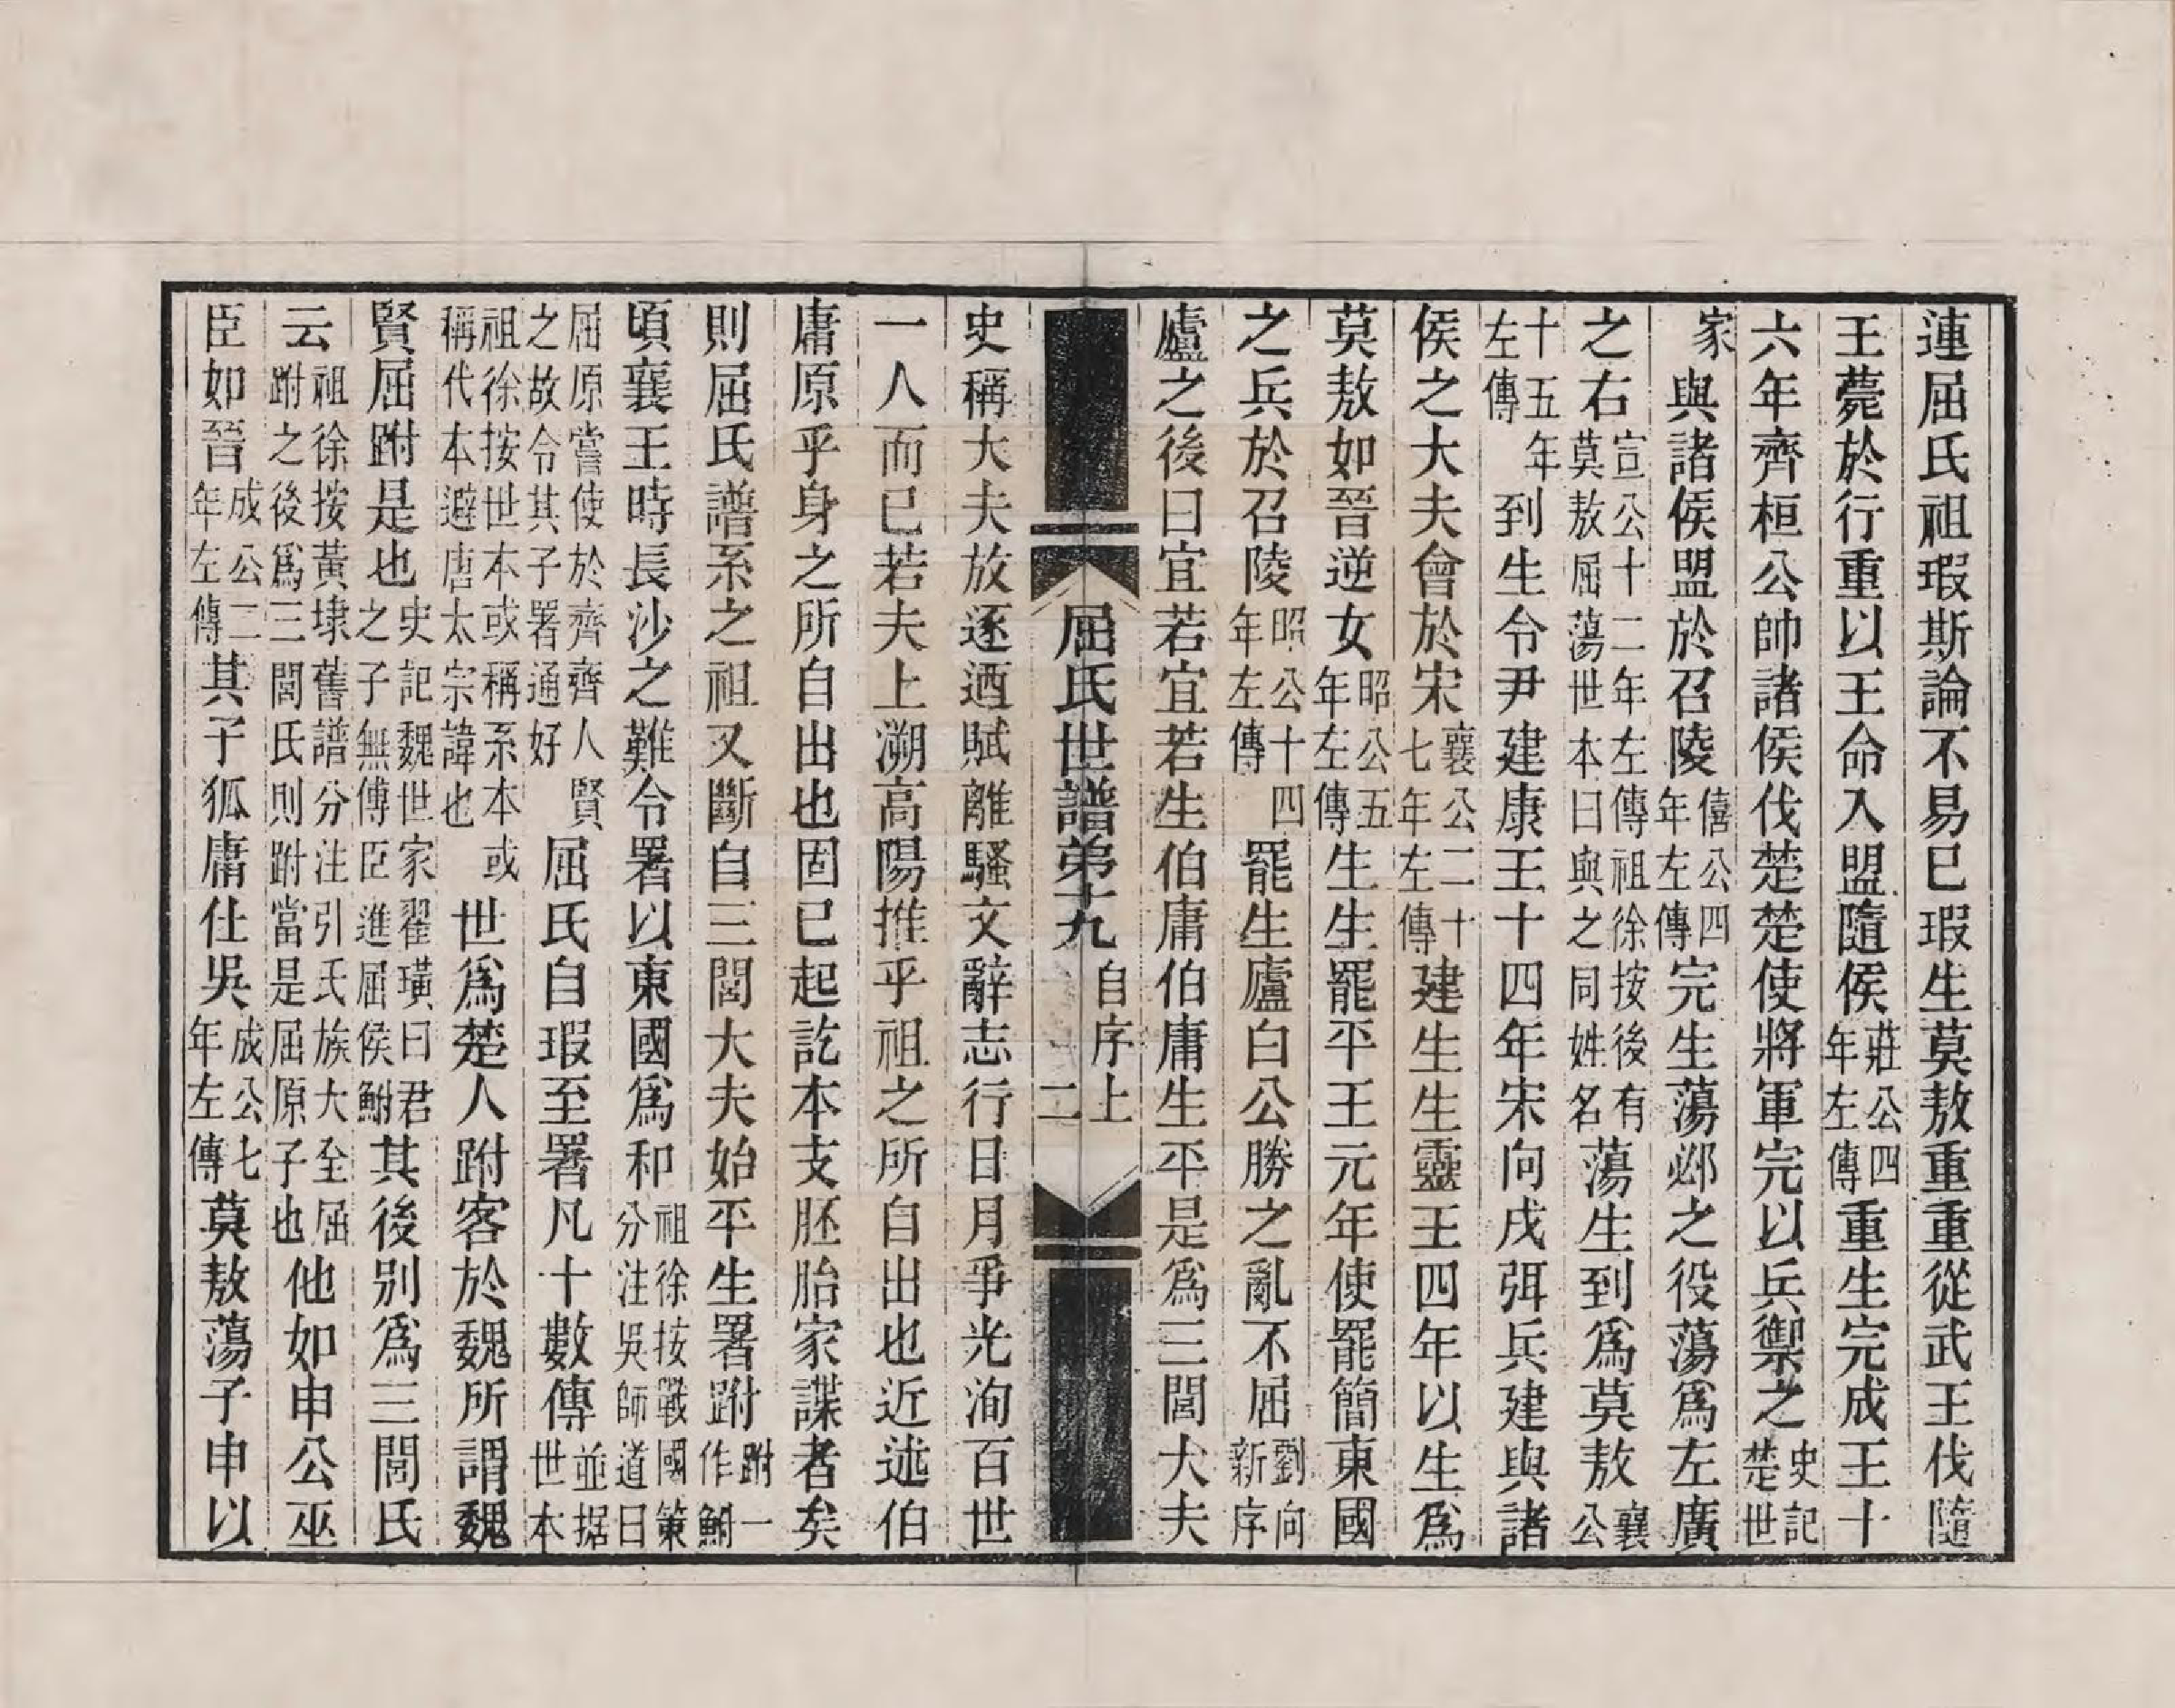 連屈氏祖瑕斯論不易已瑕生莫敖重重從武王伐隨
王薨於行重以王命入盟隨侯莊公四年左傳重生完成王十
六年齊桓公帥諸侯伐楚楚使將軍完以兵禦之史記楚世
家與諸侯盟於召陵僖公四年左傳完生蕩邲之役蕩爲左廣
之右宣公十二年左傳祖徐按後有莫敖屈蕩世本曰與之同姓名蕩生到爲莫敖襄公
十五年左傳到生令尹建康王十四年宋向戌弭兵建與諸
侯之大夫會於宋襄公二十七年左傳建生生靈王四年以生爲
莫敖如晉逆女昭公五年左傳生生罷平王元年使罷簡東國
之兵於召陵昭公十四年左傳罷生廬白公勝之亂不屈劉向新序
廬之後曰宜若宜若生伯庸伯庸生平是爲三閭大夫
屈氏世譜弟十九 自序上 二
史稱大夫放逐迺賦離騷文辭志行日月爭光洵百世
一人而已若夫上溯高陽推乎祖之所自出也近述伯
庸原乎身之所自出也固已起訖本支胚胎家諜者矣
則屈氏譜系之祖又斷自三閭大夫始平生署跗跗一作鮒
頃襄王時長沙之難令署以東國爲和祖徐按戰國策分注吳師道曰
屈原嘗使於齊齊人賢之故令其子署通好屈氏自瑕至署凡十數傳並据世本
祖徐按世本或稱系本或稱代本避唐太宗諱也世爲楚人跗客於魏所謂魏
賢屈跗是也史記魏世家翟璜曰君之子無傅臣進屈侯鮒其後別爲三閭氏
云祖徐按黃埭舊譜分注引氏族大至屈跗之後爲三閭氏則跗當是屈原子也他如申公巫
臣如晉成公二年左傳其子狐庸仕吳成公七年左傳莫敖蕩子申以